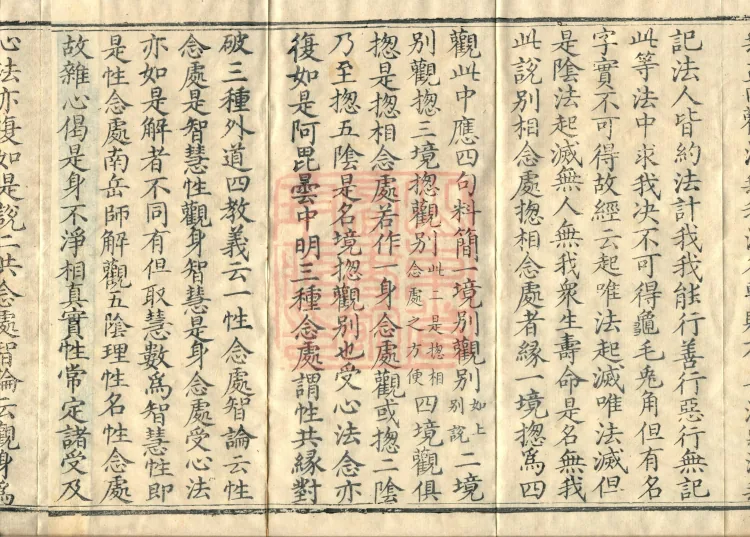 記法人皆約法計我我能行善行惡行無記
此等法中求我决不可得龜毛兎角但有名
字實不可得故經云起唯法起滅唯法滅但
是陰法起滅無人無我衆生壽命是名無我
此說別相念處揔相念處者緣一境揔爲四
觀此中應四句料簡一境別觀別如上別說二境
別觀揔三境揔觀別此二是揔相念處之方便四境觀俱
揔是揔相念處若作一身念處觀或揔二陰
乃至揔五陰是名境揔觀別也受心法念亦
復如是阿毘曇中明三種念處謂性共緣對
破三種外道四教義云一性念處智論云性
念處是智慧性觀身智慧是身念處受心法
亦如是解者不同有但取慧數爲智慧性即
是性念處南岳師解觀五陰理性名性念處
故雜心偈是身不淨相真實性常定諸受及
心法亦復如是說二共念處智論云觀身爲